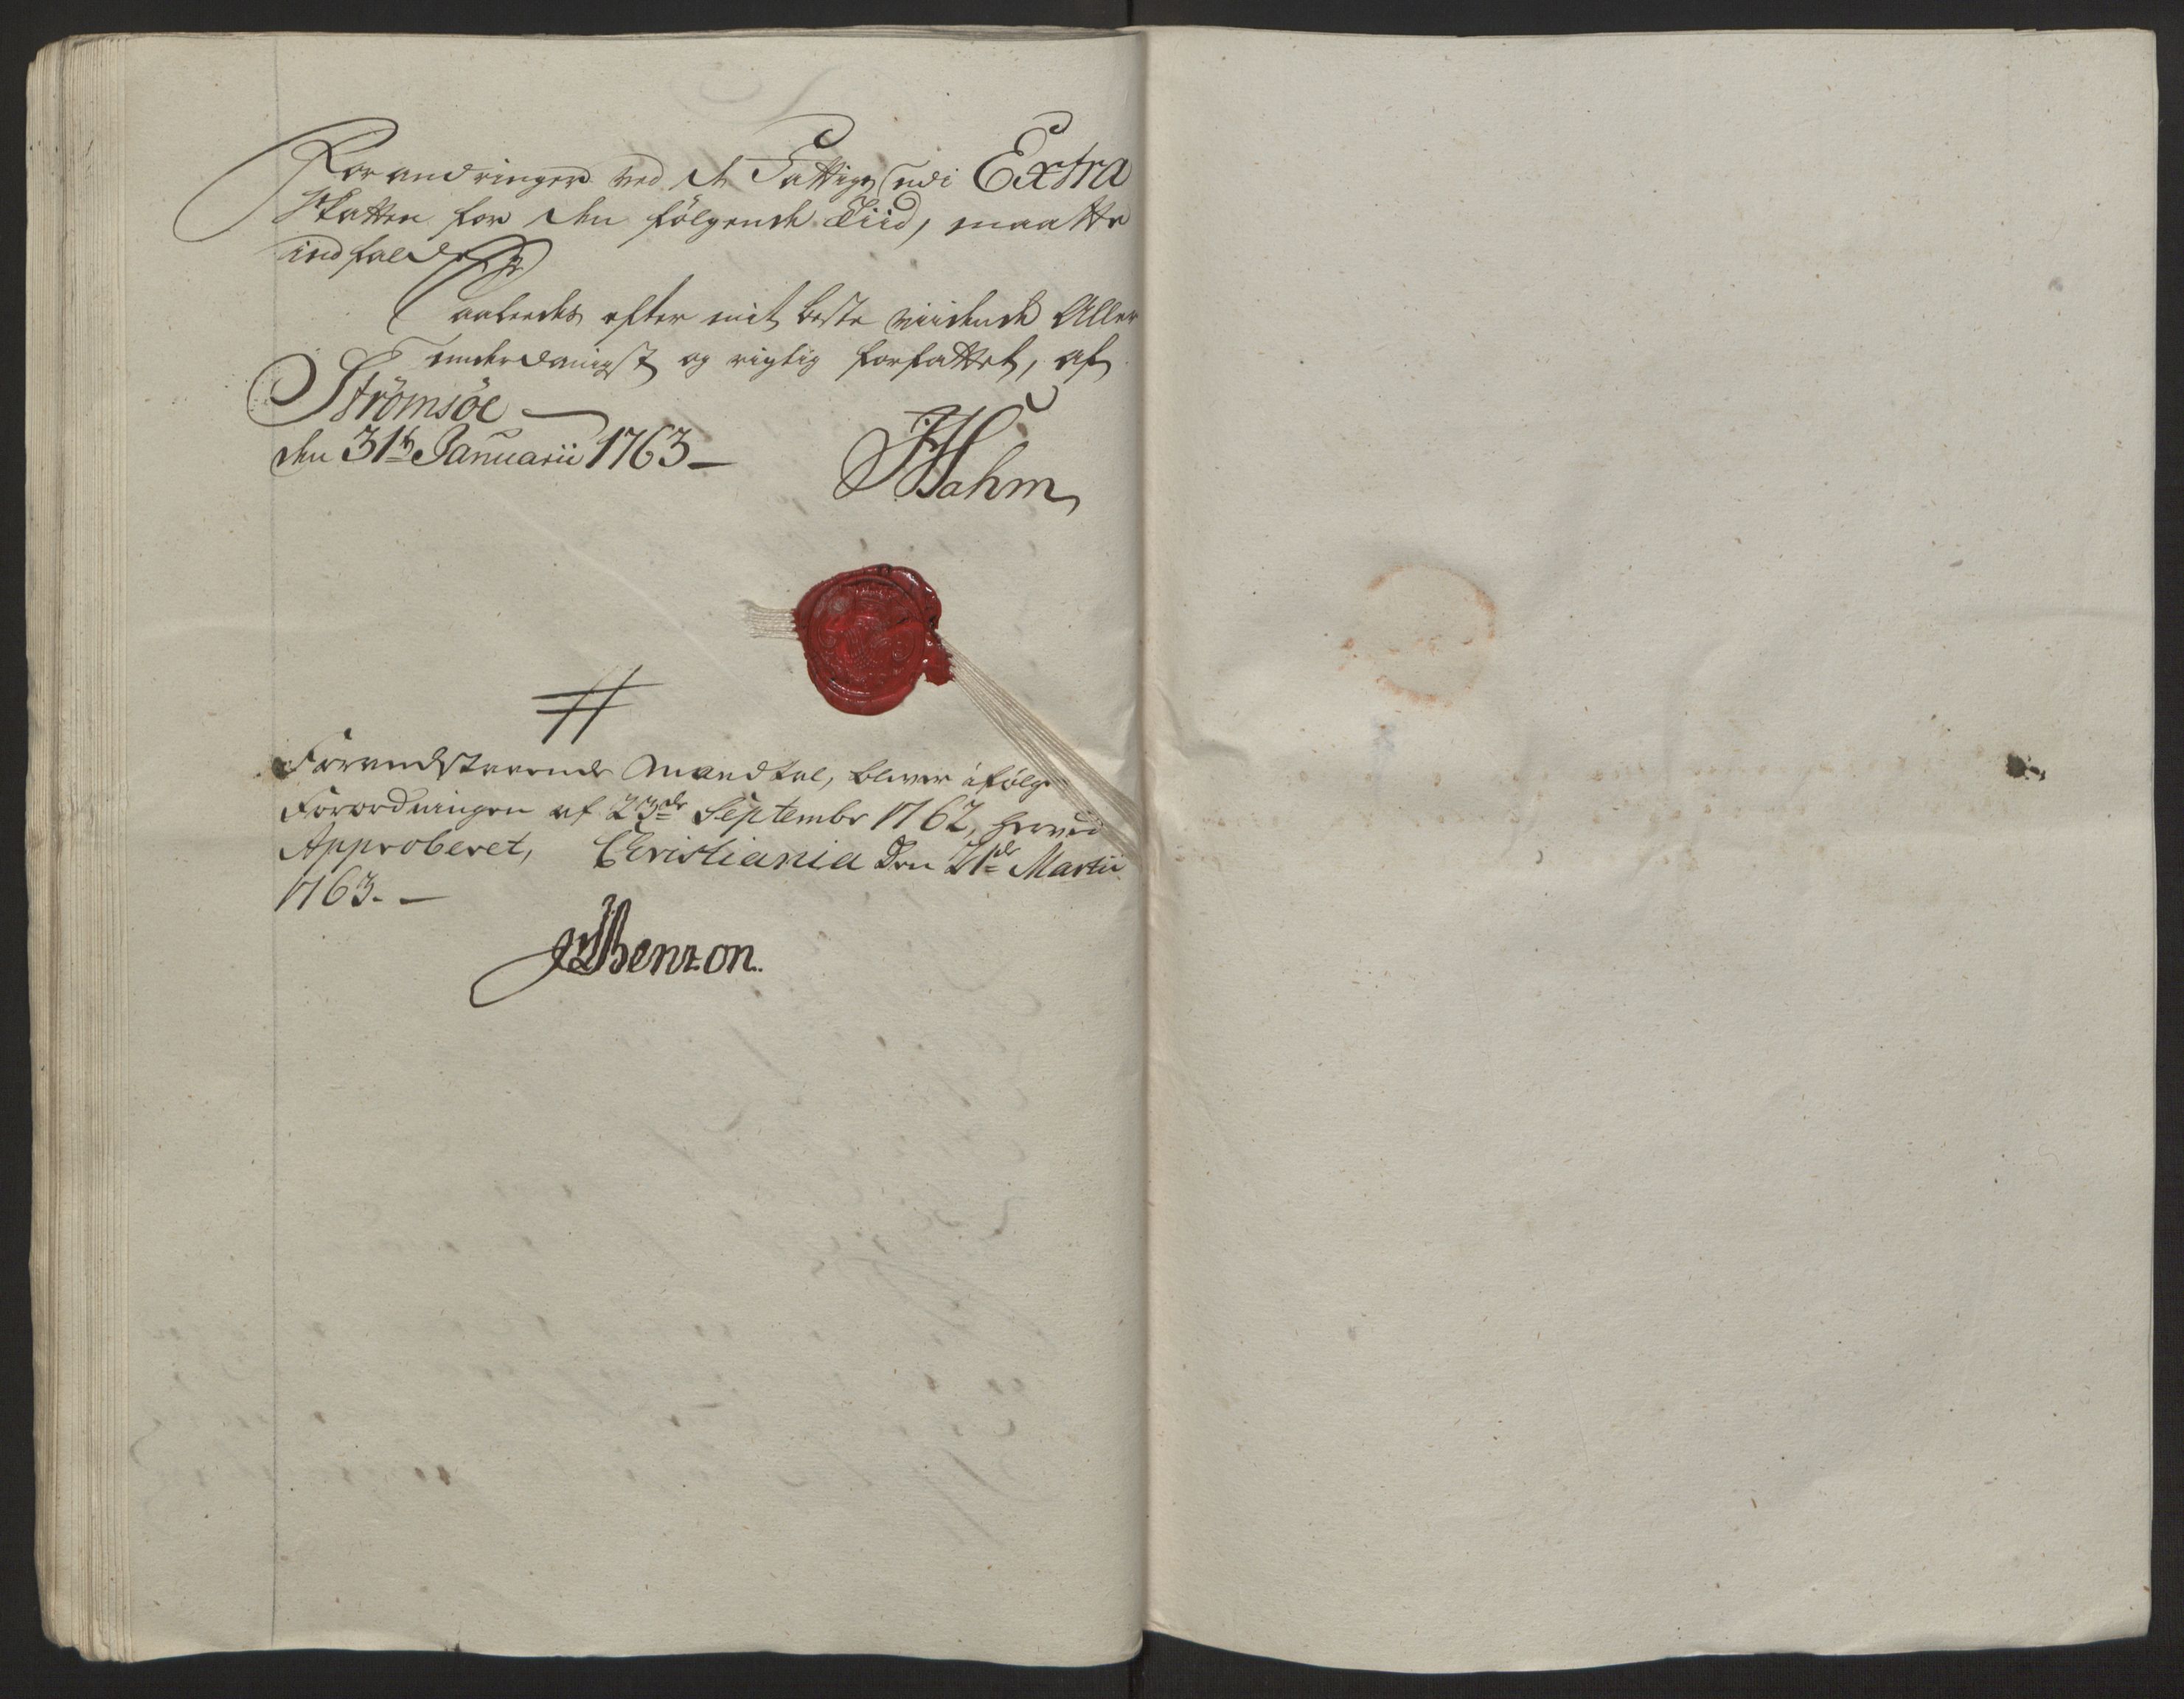 Forandringer ved de Fattige udi Extra
Skatten for den følgende Tiid, maatte
indfalde
Saaledes efter mit beste viidende Aller
underdanigst og rigtig forfattet, af
Strömsöe
den 31te Januarii 1763
Hahm
Forandstaaende Mandtal, bliver ifølge
Forordningen af 23de Septembr 1762, herved
Approberet, Christiania den 21de Martii
1763.
Benzon.